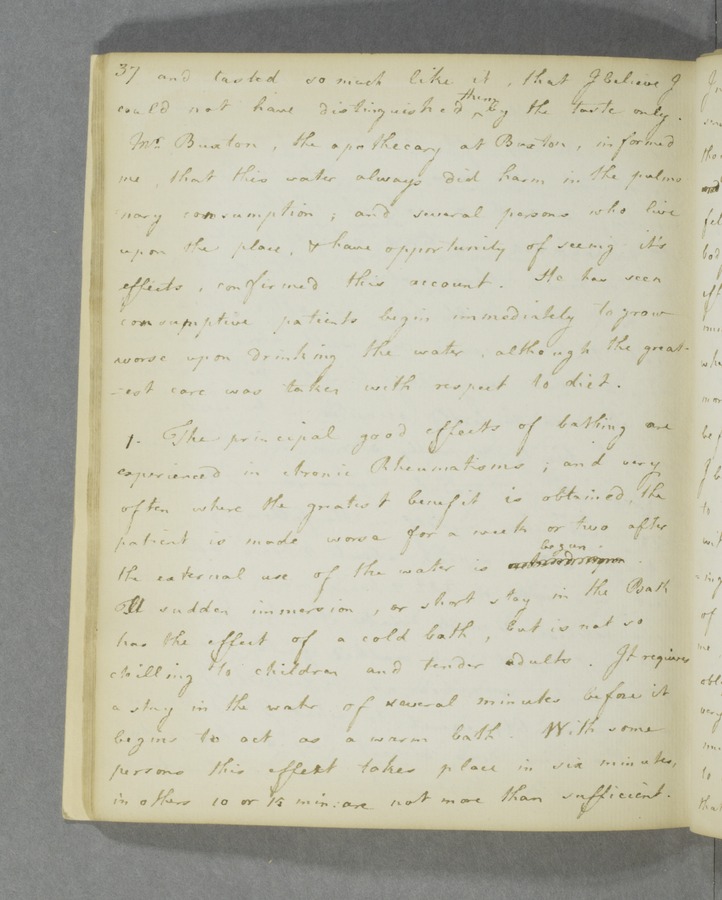 37 and tasted so much like it, that I believe I
could not have distinguished them by the taste only.
Mr. Buxton, the apothecary at Buxton, informed
me, that this water always did harm in the pulmo
nary consumption; and several persons who live
upon the place, & have opportunity of seeing it's
effects, confirmed this account. He has seen
consumptive patients begin immediately to grow
worse upon drinking the water, although the great-
-est care was taken with respect to diet.
1. The principal good effects of bathing are
experienced in chronic Rheumatisms; and very
often where the greatest benefit is obtained, the
patient is made worse for a week or two after
the external use of the water is begun.
A sudden immersion, or short stay in the Bath
has the effect of a cold bath, but is not so
chilling to children and tender adults. It requires
a stay in the water of several minutes before it
begins to act as a warm bath. With some
persons this effect takes place in six minutes,
in others 10 or 15 min: are not more than sufficient.